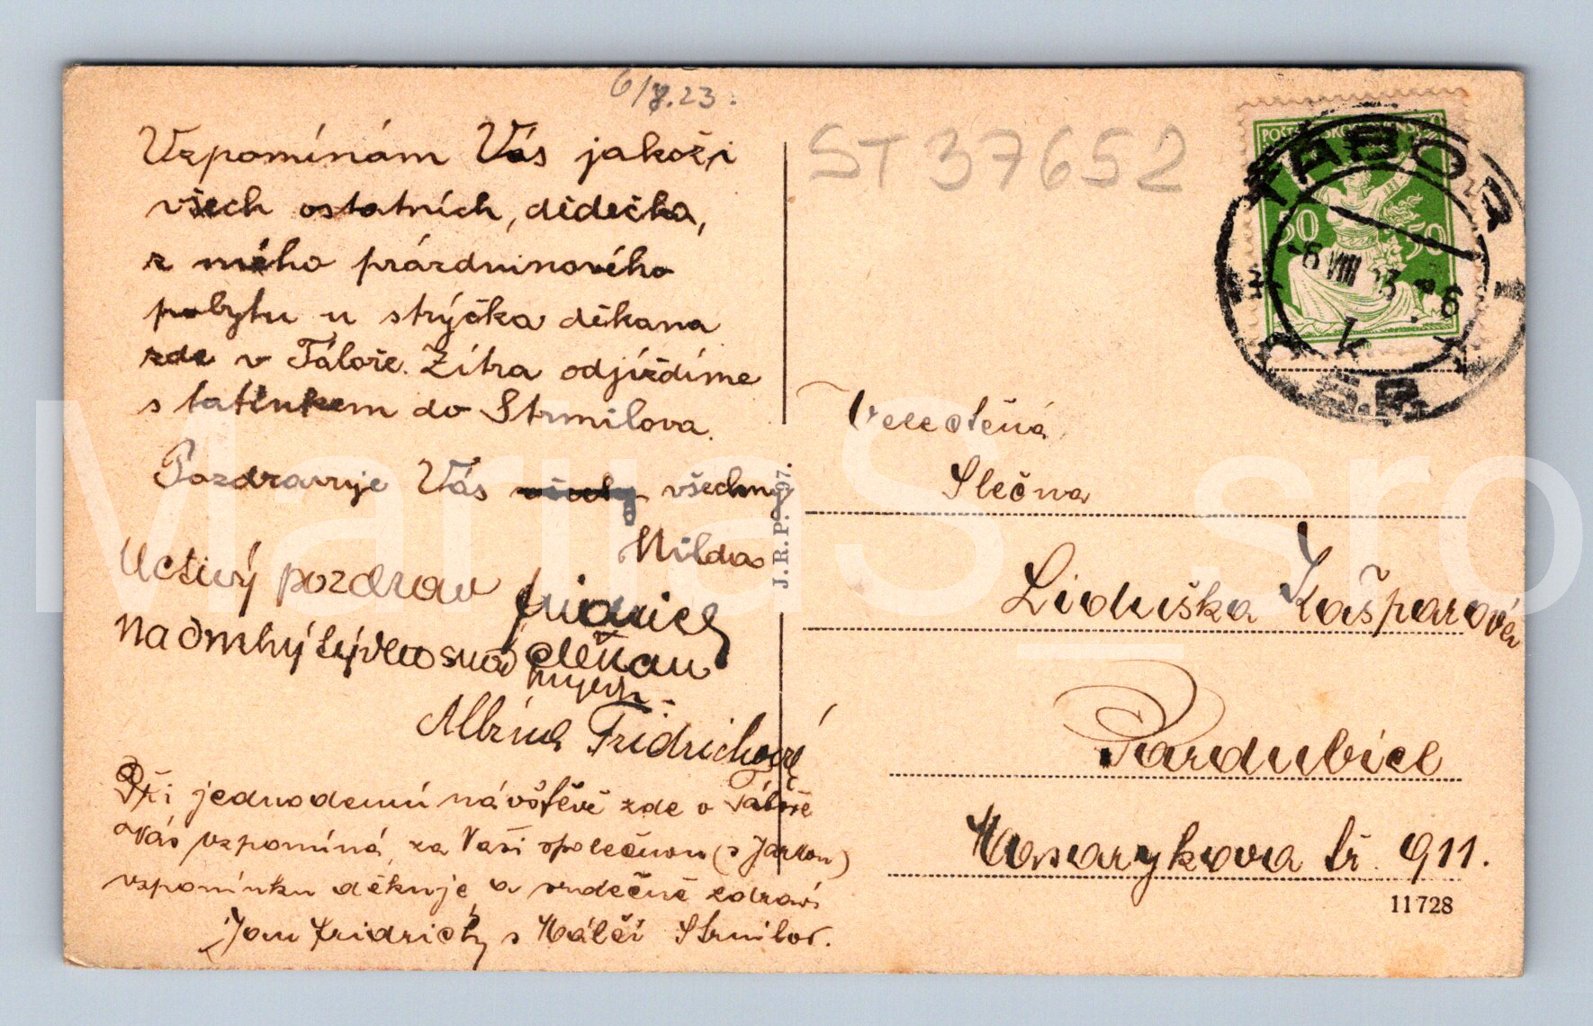 6/8.23.
Vzpomínám Vás jakož i
všech ostatních, dědečka,
z mého prázdninového
pobytu u strýčka děkana
zde v Táboře. Zítra odjíždíme
s tatínkem do Strmilova.
Pozdravuje Vás všechny
Milda
Uctivý pozdrav
na druhý týden snad
děkan
Albína Fridrichová
Při jednodenní návštěvě zde v Táboře
Vás vzpomíná, za Vaši společnou (s Jarkou)
vzpomínku děkuje a srdečně zdraví
Jan Fridrich, s Máňčí Strmilov.
J. R. P. 97.
ST 37652
TÁBOR 1
-6 VIII 23 - 6
50 50
Velectěná
Slečna
Liduška Kašparová
Pardubice
Masarykova tř. 911.
11728
MarijaS_sro